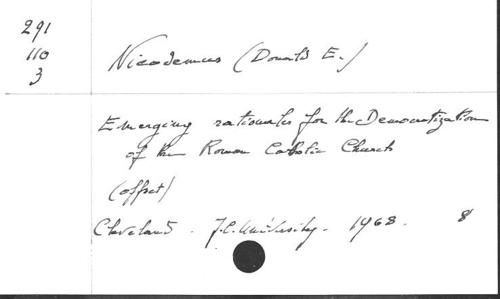 291
110
3
Nicodemus (Donald E.)
Emerging rationales for the Democratization
of the Roman Catholic Church
(offset)
Cleveland. J.C. University. 1968. 8